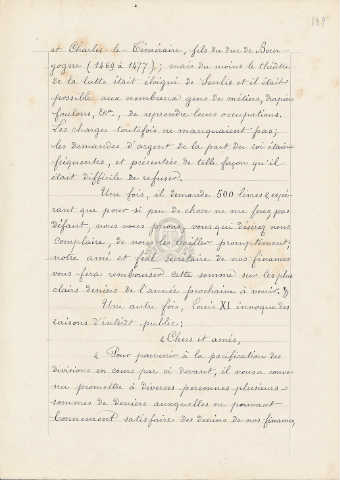 et Charles le Téméraire, fils du duc de Bour-
gogne (1469 à 1477); mais du moins le théâtre
de la lutte était éloigné de Senlis et il était
possible aux nombreux gens de métiers, drapiers
foulons, &c., de reprendre leurs occupations.
Les charges toutefois ne manquaient pas;
les demandes d'argent de la part du roi étaient
fréquentes, et présentées de telle façon qu'il
était difficile de refuser.
Une fois, il demande 500 livres « espé-
rant que pour si peu de chose ne me ferez pas
défaut, nous vous prions, vous qui désirez nous
complaire, de nous les bailler promptement;
notre amé et féal secrétaire de nos finances
vous fera rembourser cette somme sur les plus
clairs deniers de l'année prochaine à venir. »
Une autre fois, Louis XI invoque des
raisons d'intérêt public;
« Chers et amés,
« Pour parvenir à la pacification des
divisions en cours par ci devant, il nous a conve-
nu promettre à diverses personnes plusieurs
sommes de deniers auxquelles ne pouvant
bonnement satisfaire des deniers de nos finances,